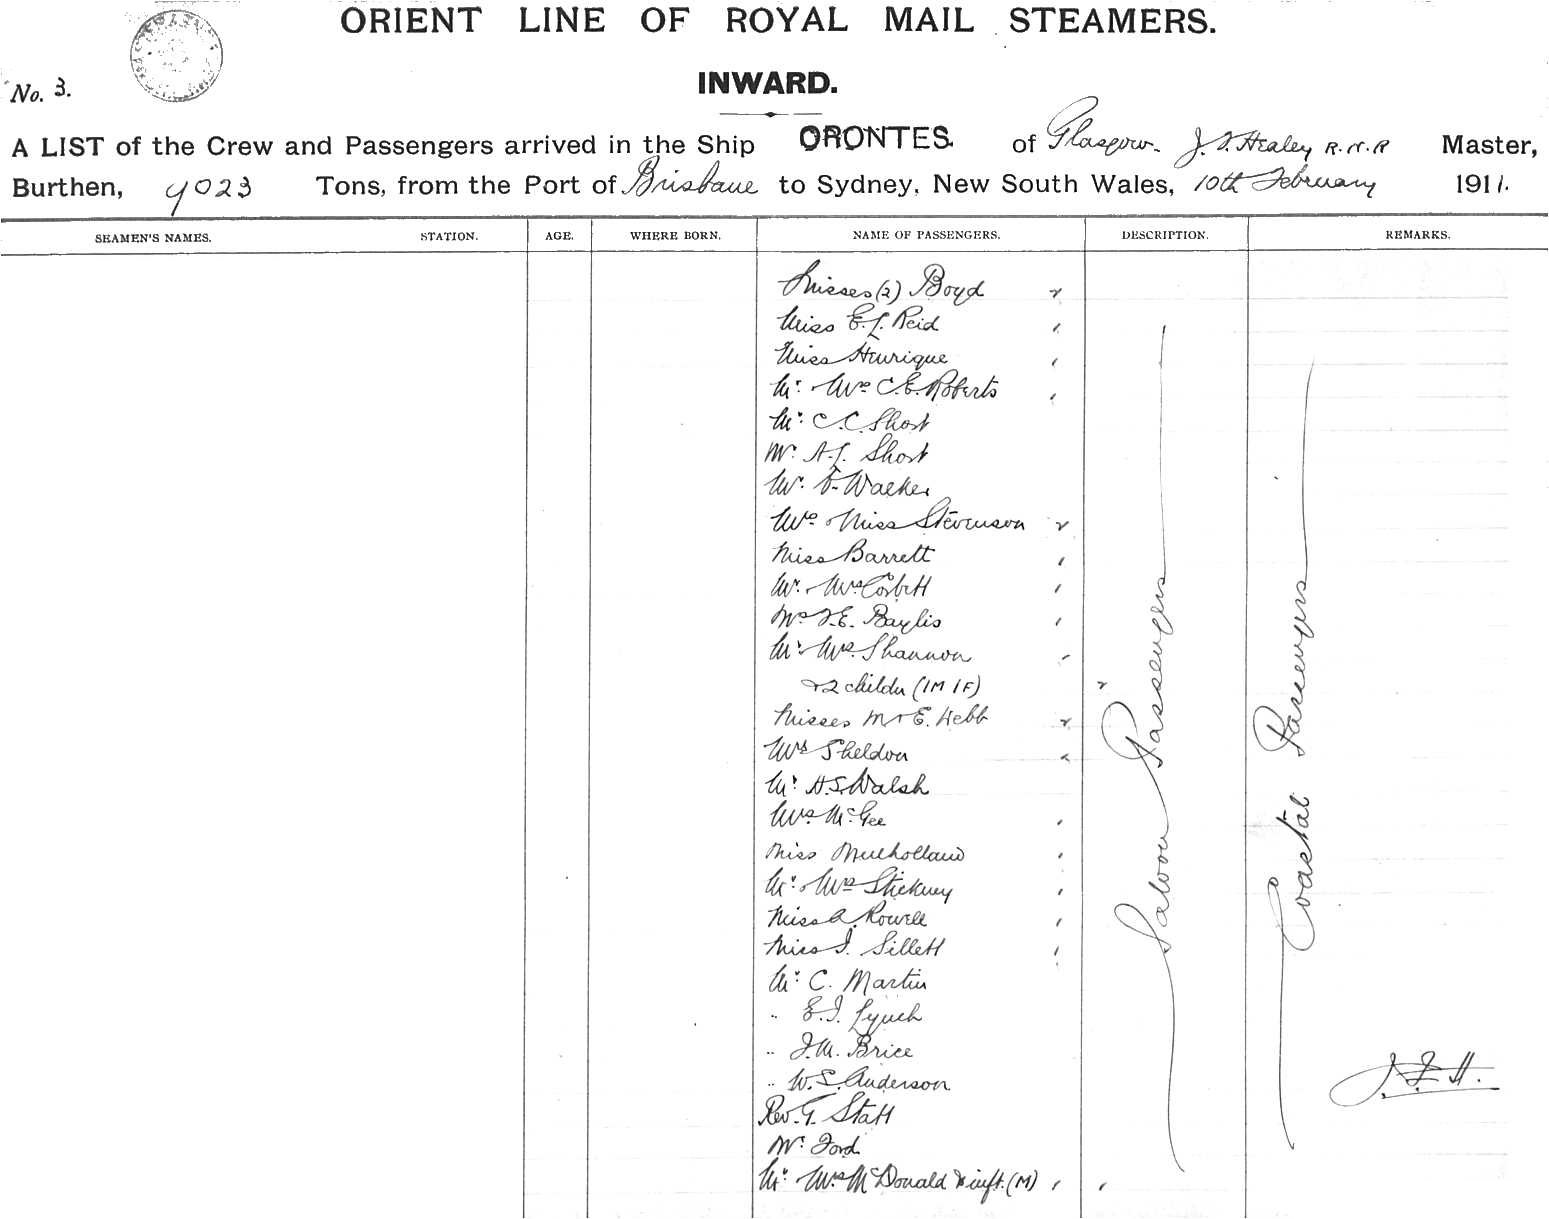 ORIENT LINE OF ROYAL MAIL STEAMERS.
INWARD.
No. 3.
A LIST of the Crew and Passengers arrived in the Ship ORONTES. of Glasgow. J. F. Healey R.N.R Master,
Burthen, 9023 Tons, from the Port of Brisbane to Sydney, New South Wales, 10th February 1911.
SEAMEN'S NAMES. STATION. AGE. WHERE BORN. NAME OF PASSENGERS. DESCRIPTION. REMARKS.
Misses (2) Boyd
Miss E. J. Reid
Miss Henrique
Mr. & Mrs C.E. Roberts
Mr. C. C. Short
Mr. A. J. Short
Mr. Walker
Mrs & Miss Stevenson
Miss Barrett
Mr. & Mrs Corbett
Mrs F.E. Baylis
Mr. & Mrs. Shannon
& 2 childn (1M 1F)
Misses M & E. Webb
Mrs Sheldon
Mr. H.S. Walsh
Mrs. McGee
Miss Mulholland
Mr. & Mrs Stickney
Miss A. Rowell
Miss I. Sillett
Mr. C. Martin
" E.J. Lynch
" J.M. Brice
" W.S. Anderson
Rev. G. Statt
Mr. Ford
Mr. & Mrs McDonald & inft. (M)
Saloon Passengers
Coastal Passengers
J.F.H.